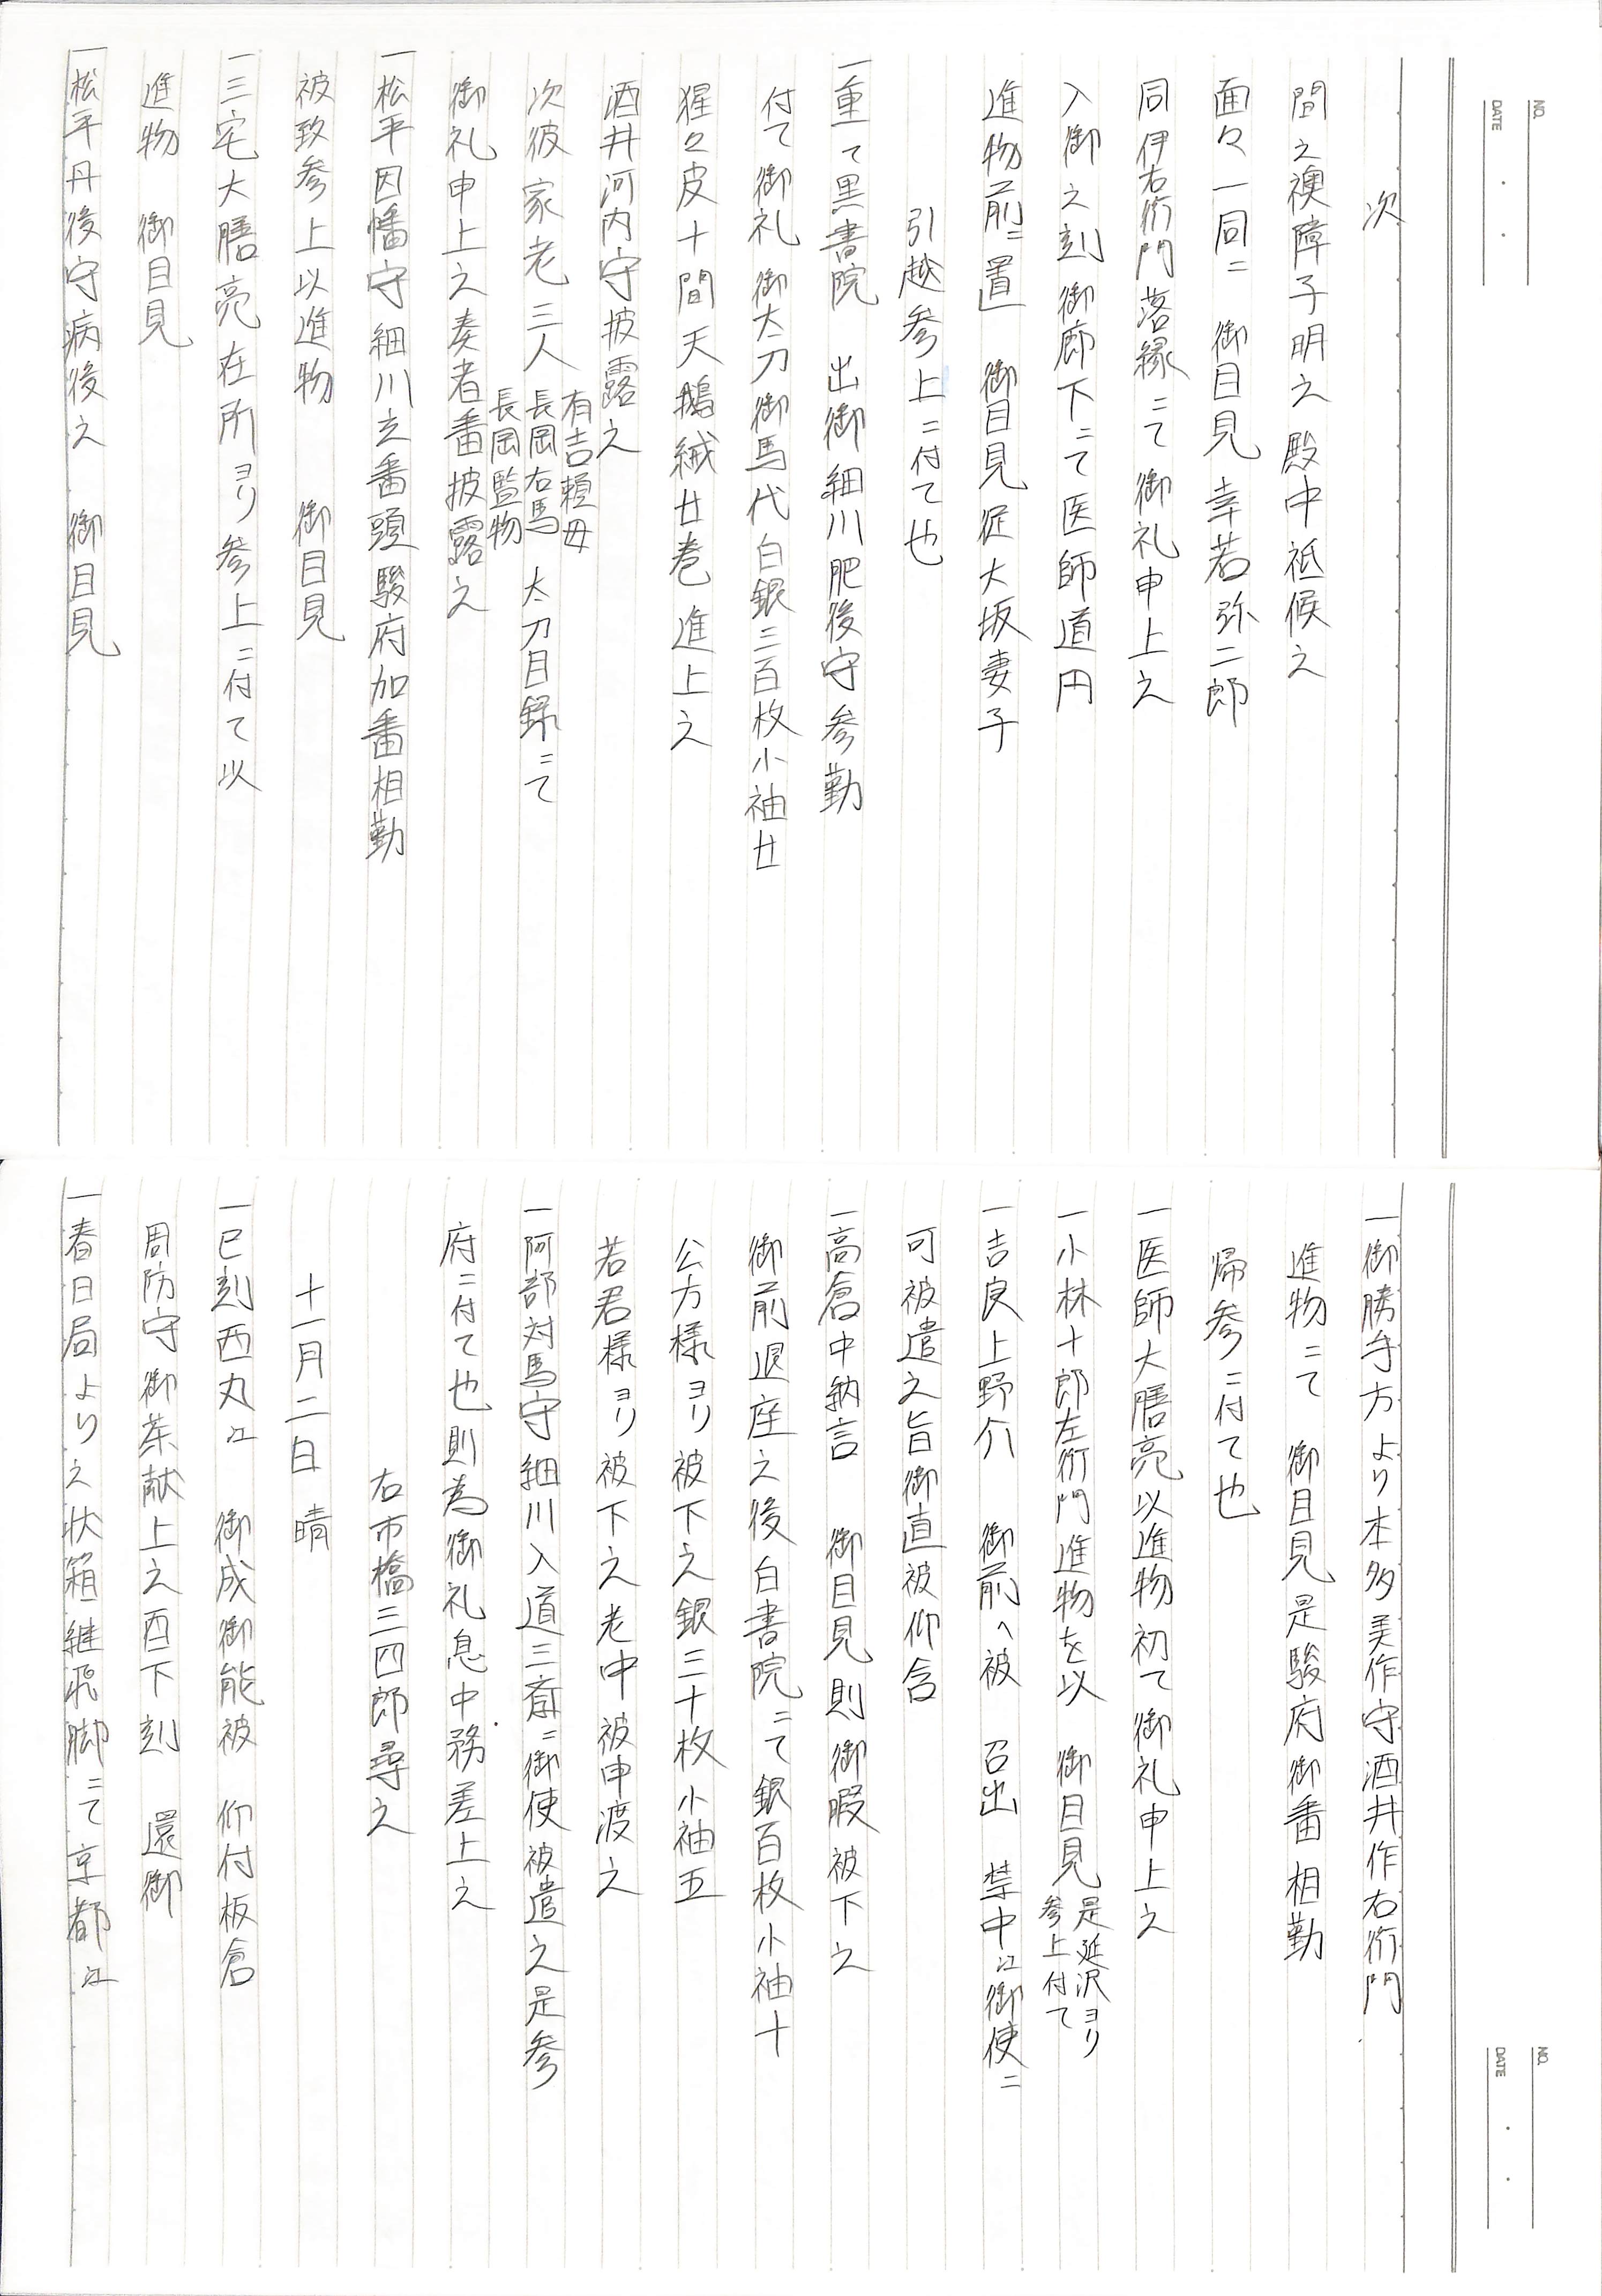 NO.
DATE
次
間之襖障子明之殿中祗候之
面々一同ニ 御目見幸若弥二郎
同伊右衛門落縁ニて御礼申上之
入御之刻御廊下ニて医師道円
進物前ニ置 御目見従大坂妻子
引越参上ニ付て也
一重て黒書院 出御細川肥後守参勤
付て御礼 御太刀御馬代白銀三百枚小袖廿
猩々皮十間天鵝絨廿巻進上之
酒井河内守披露之
次彼家老三人 有吉頼母 長岡右馬 長岡監物 太刀目録ニて
御礼申上之奏者番披露之
一松平因幡守細川玄番頭駿府加番相勤
被致参上以進物 御目見
一三宅大膳亮在所ヨリ参上ニ付て以
進物 御目見
一松平丹後守病後之 御目見
NO.
DATE
一御勝手方より本多美作守酒井作右衛門
進物ニて 御目見是駿府御番相勤
帰参ニ付て也
一医師大膳亮以進物初て御礼申上之
一小林十郎左衛門進物を以 御目見 是延沢ヨリ 参上付て
一吉良上野介 御前へ被 召出 禁中江御使ニ
可被遣之旨御直被仰含
一高倉中納言 御目見則御暇被下之
御前退座之後白書院ニて銀百枚小袖十
公方様ヨリ被下之銀三十枚小袖五
若君様ヨリ被下之老中被申渡之
一阿部対馬守細川入道三斎ニ御使被遣之是参
府ニ付て也則為御礼息中務差上之
右市橋三四郎尋之
十一月二日 晴
一巳刻西丸江 御成御能被 仰付板倉
周防守御茶献上之酉下刻 還御
一春日局より之状箱継飛脚ニて京都江